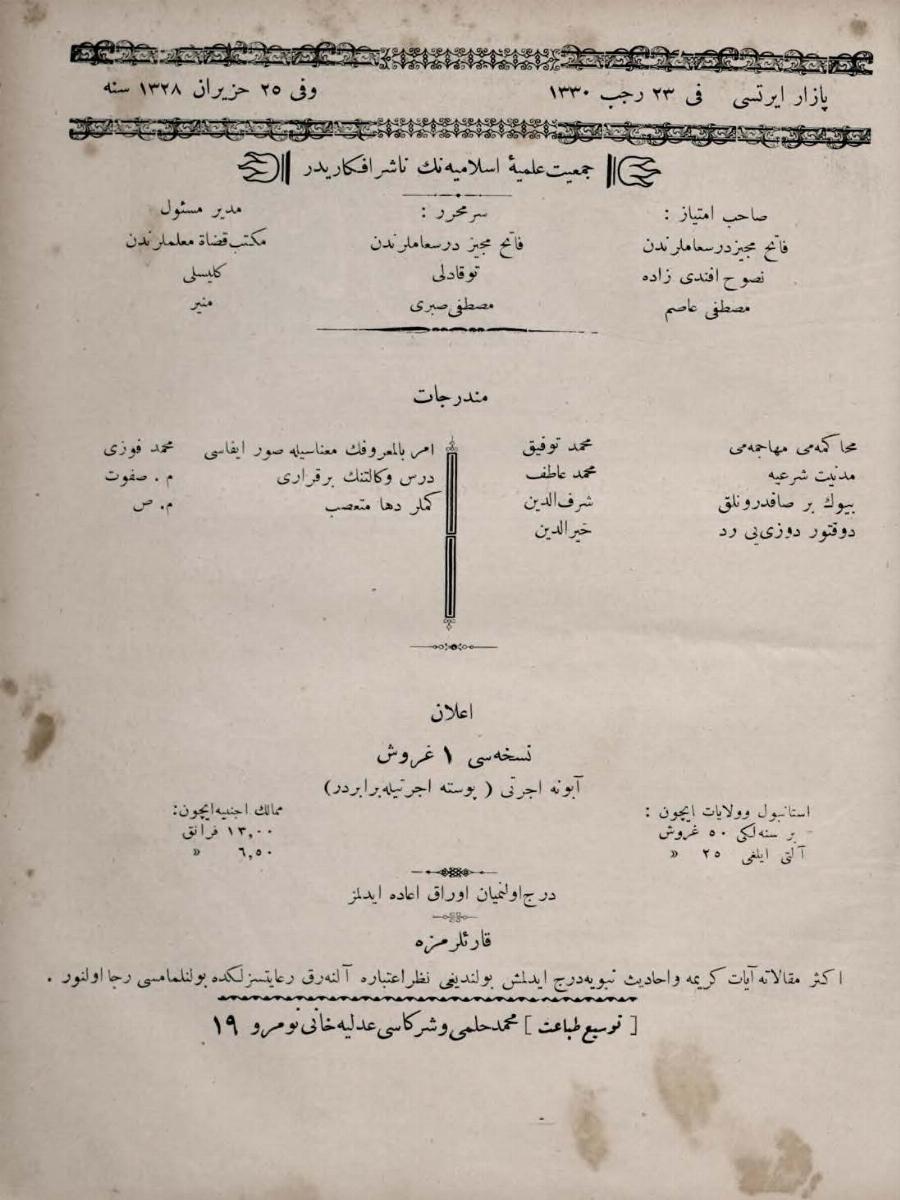 پازار ایرتسی فی ٢٣ رجب ١٣٣٠ وفی ٢٥ حزیران ١٣٢٨ سنه
جمعیت علمیهٔ اسلامیه‌نك ناشر افكاریدر
صاحب امتیاز : سرمحرر : مدیر مسئول
فاتح مجیز درسعاملرندن فاتح مجیز درسعاملرندن مكتب قضاة معلملرندن
نصوح افندی زاده توقادلی كلیسلی
مصطفی عاصم مصطفی صبری منیر
مندرجات
محاكمه‌می مهاجمه‌می محمد توفیق
مدنیت شرعیه محمد عاطف
بیوك بر صافدرونلق شرف‌الدین
دوقتور دوزی‌یی رد خیرالدین
امر بالمعروفك معناسیله صور ایفاسی محمد فوزی
درس وكالتنك برقراری م . صفوت
كملر دها متعصب م . ص
اعلان
نسخه‌سی ١ غروش
آبونه اجرتی ( پوسته اجرتیله برابردر)
استانبول وولایات ایچون : ممالك اجنبیه ایچون:
بر سنه‌لكی ٥٠ غروش ١٣,٠٠ فرانق
آلتی ایلغی ٢٥ » ٦,٥٠ »
درج اولنمیان اوراق اعاده ایدلمز
قارئلرمزه
اكثر مقالاته آیات كریمه واحادیث نبویه درج ایدلمش بولندیغی نظر اعتباره آلنه‌رق رعایتسزلكده بولنلمامسی رجا اولنور .
[ توسیع طباعت ] محمد حلمی و شركاسی عدلیه خانی نومرو ١٩